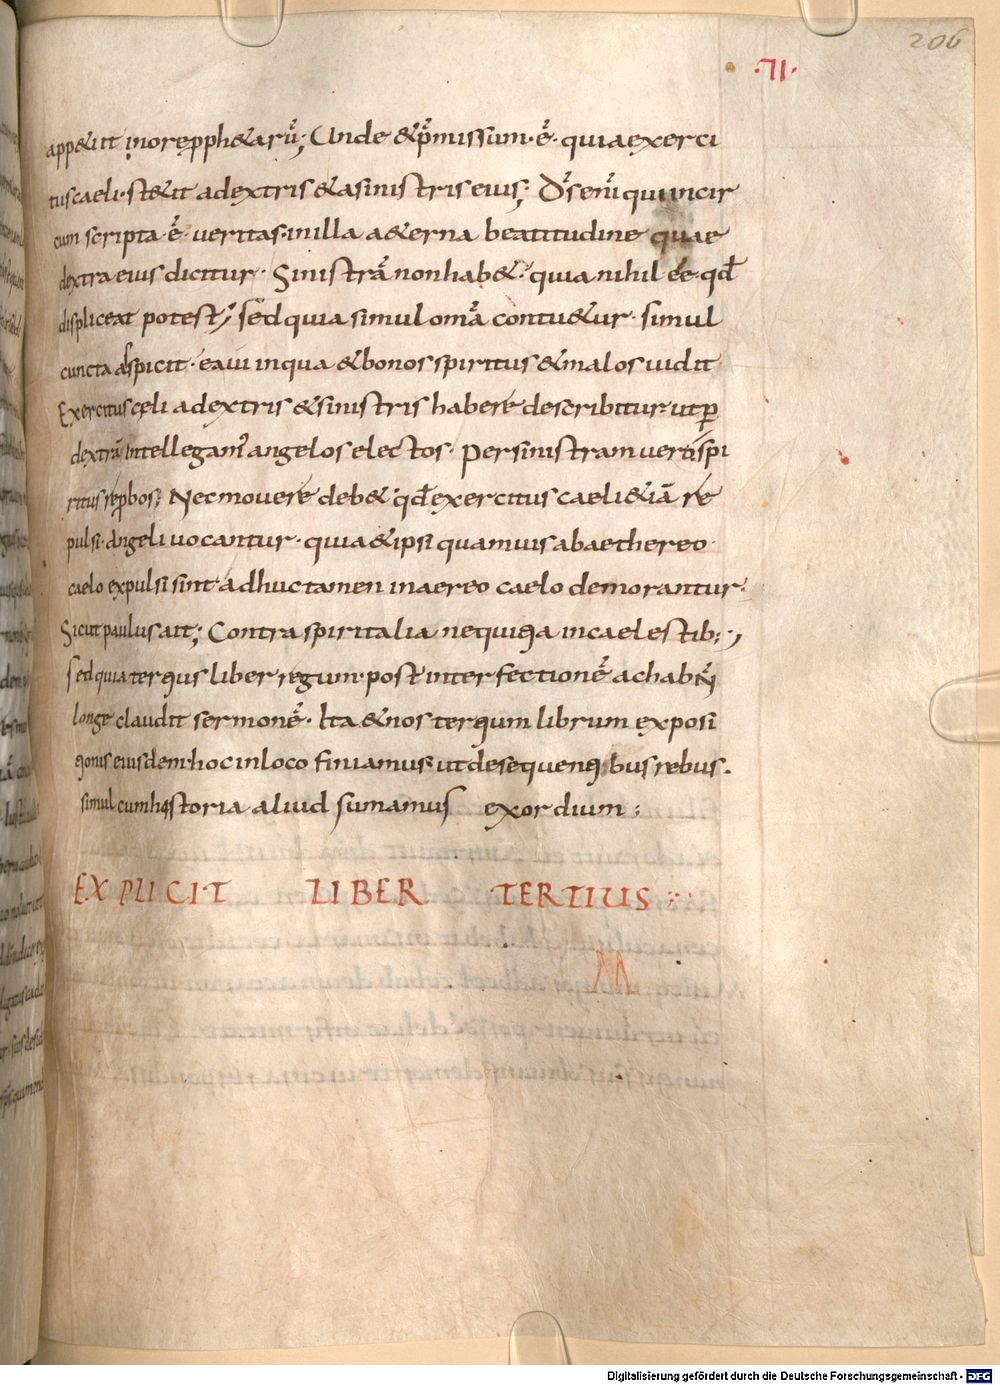 206
·VI·
app&iit inore ꝓph&arū; Unde &p̄missum·ē· quia exerci
tus caeli·st&it adextris &asinistris eius; Ds̄ enī qui incir
cum scripta·ē· veritas·inilla a&erna beatitudine quae
dextra eius dicitur· Sinistrā non hab&· quia nihil eē qd̄
displiceat potest; sed quia simul omā contu&ur· simul
cuncta aspicit· eaui inqua &bonos spiritus &malos uidit
Exercitus cęli adextris &sinistris habere describitur· ut ꝑ
dextrā intellegant̄ angelos electos· Per sinistram vero spi
ritus reꝓbos; Nec movere deb& qd̄ exercitus caeli &iā re
pulsi· Angeli uocantur· quia &ipsi quamuis ab aethereo·
caelo expulsi sint· adhuc tamen in aereo caelo demorantur·
Sicut paulus ait; Contra spiritalia nequitia in caelestib:;
sed quia tertius liber regum· post interfectionē achab n̄
longe claudit sermonē· Ita &nos tertium librum exposi
tionis eiusdem· hoc in loco finiamus· ut desequentibus rebus·
simul cum historia aliud sumamus exordium:
EXPLICIT LIBER TERTIUS
Digitalisierung gefördert durch die Deutsche Forschungsgemeinschaft - DFG